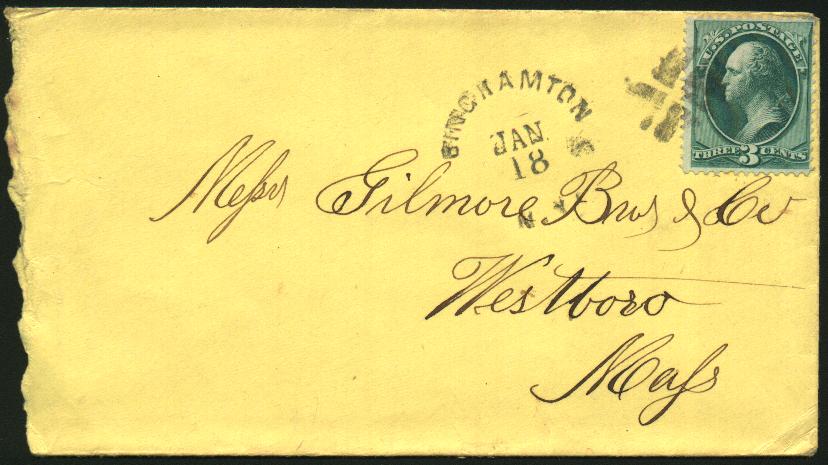 U.S. POSTAGE
THREE 3 CENTS
BINGHAMTON
JAN
18
N.Y.
Messrs Gilmore Bros & Co
Westboro
Mass